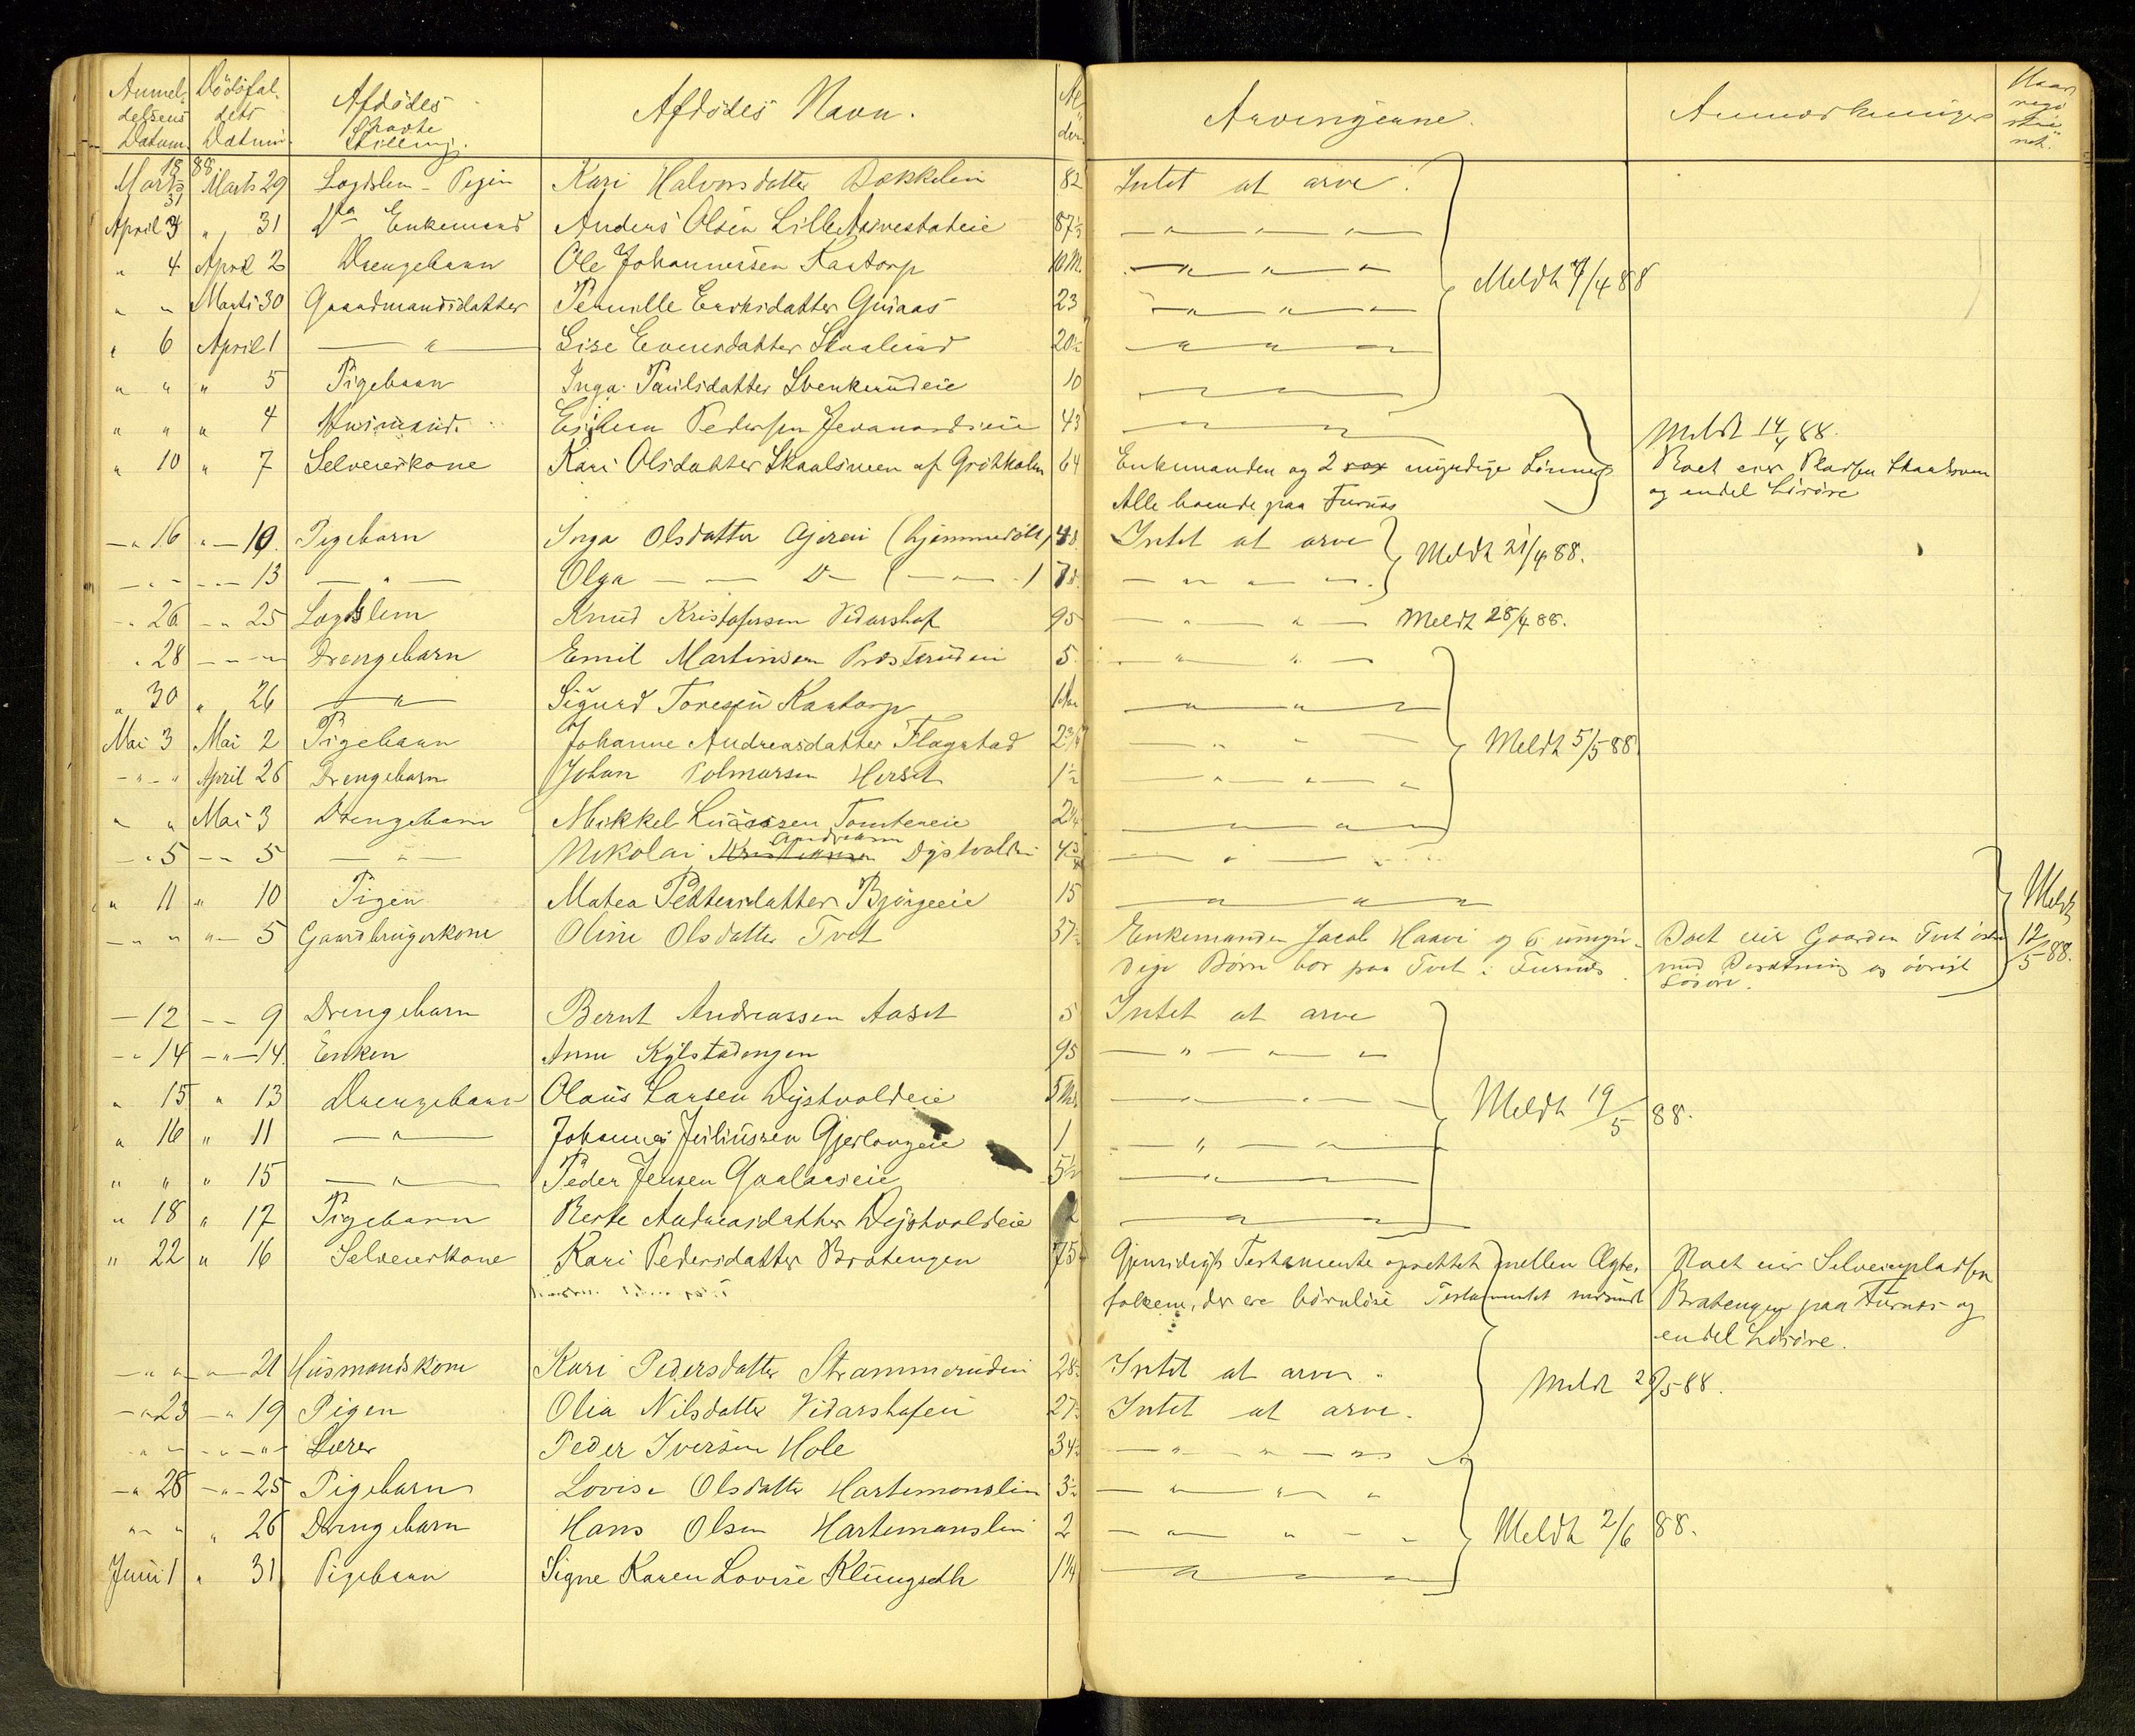 Anmel- Dödsfal- Afdödes Afdödes Navn. Al- Arvingerne. Anmærkninger Naar
delsens dets
Datum Datum Stilling. der
1888
Marts 31 Marts 29 Lægdslem - Pigen Kari Halvorsdatter Bækkelien 82 Intet at arve.
April 3 " 31 Do Enkemand Anders Olsen Lille 87½ — " — " —
" 4 April 2 Drengebarn Ole Johannessen Kaatorp 10 M. — " — " —
Meldt 7/4 88
" " Marts 30 Gaardmandsdatter Pernille Eriksdatter 23 — " — " —
" 6 April 1 — " — Lise Evensdatter 20½ — " — " —
" " " 5 Pigebarn Inga Paulsdatter 10 — " — " —
" " " 4 Husmand Pedersen 43 — " — " — Meldt 14/4 88.
" 10 " 7 Selveierkone Kari Olsdatter 64 Enkemanden og 2 myndige Sönner Boet eier Pladsen
Alle boende paa Furnæs og endel Lösöre
— " 16 " — 10. Pigebarn Inga Olsdatter Ajeren (hjemmedöbt) Intet at arve Meldt 21/4 88.
— " — — " — 13 — " — Olga — — D — ( — " — ) — " — " —
— " 26 — " 25 Lægdslem Knud Kristofersen Vidarshof 95 — " — " — Meldt 28/4 88.
" 28 — " — Drengebarn Emil Martinsen 5 — " — " —
" 30 " 26 — " — Sigurd Toresen Kaatorp — " — " —
Mai 3 Mai 2 Pigebarn Johanne Andreasdatter Flagstad 2¾ — " — " — Meldt 5/5 88.
— " — " April 26 Drengebarn Johan Herset 1½ — " — " —
" " Mai 3 Drengebarn Mikkel Tomtereie 2¼ — " — " —
— " 5 — " 5 — " — Nikolai Andreasen — " — " —
" 11 " 10 Pigen Matea Pettersdatter Bjørgeeie 15 — " — " — Meldt
— " " " — 5 Gaardbrugerkone Oline Olsdatter Tvet 37½ Enkemanden Jacob Haavi og 6 umyn- Boet eier Gaarden Tvet östre 12/5 88.
dige Börn bor paa Tvet i Furnæs. med Besætning og övrigt
Lösöre.
— 12 — — 9 Drengebarn Bernt Andreassen Aaset 5 Intet at arve
— " 14 — " — 14. Enken Anne Kylstadengen 95 — " — " —
" 15 " 13 Drengebarn Olaus Larsen Dystvoldeie 5 Md. — " — " — Meldt 19/5 88.
" 16 " 11 — " — Johannes Juliussen 1 — " — " —
" " " 15 — " — Peder Jensen Gaalaaseie 5½ — " — " —
" 18 " 17 Pigebarn Berte Andreasdatter Dystvoldeie 2 — " — " —
" 22 " 16 Selveierkone Kari Pedersdatter Bratengen 75 Gjensidigt Testamente oprettet mellem Ægte- Boet eier Selveierpladsen
folkene, der ere börnlöse Testamentet Bratengen paa Furnæs og
endel Lösöre.
— " " — " — 21 Husmandskone Kari Pedersdatter Strammerudeie 28 Intet at arve. Meldt 26/5 88.
— " 23 — " 19 Pigen Olia Nilsdatter Vidarshofeie 27 Intet at arve.
— " — — " — " — Lærer Peder Iversen Hole 34 — " — " —
— " 28 — " — 25 Pigebarn Lovise Olsdatter 3½ — " — " —
" — " " 26 Drengebarn Hans Olsen 2 — " — " — Meldt 2/6 88.
Juni 1 " 31 Pigebarn Signe Karen Lovise Klungseth 1¼ — " — " —